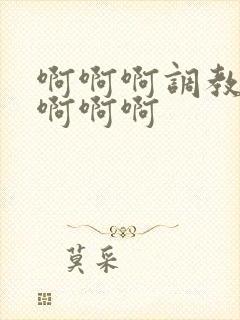 啊啊啊調教
啊啊啊
莫采